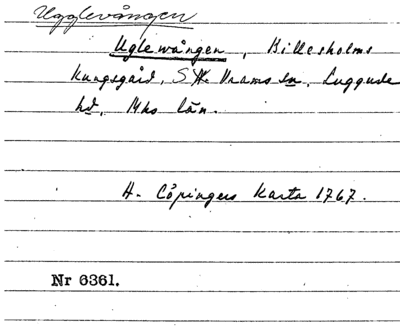 Ugglevången
Uglewången, Billesholms
Kungsgård, S. Vrams sn, Luggude
hd, Mhs län.
A. Cöpingers Karta 1767.
Nr 6361.